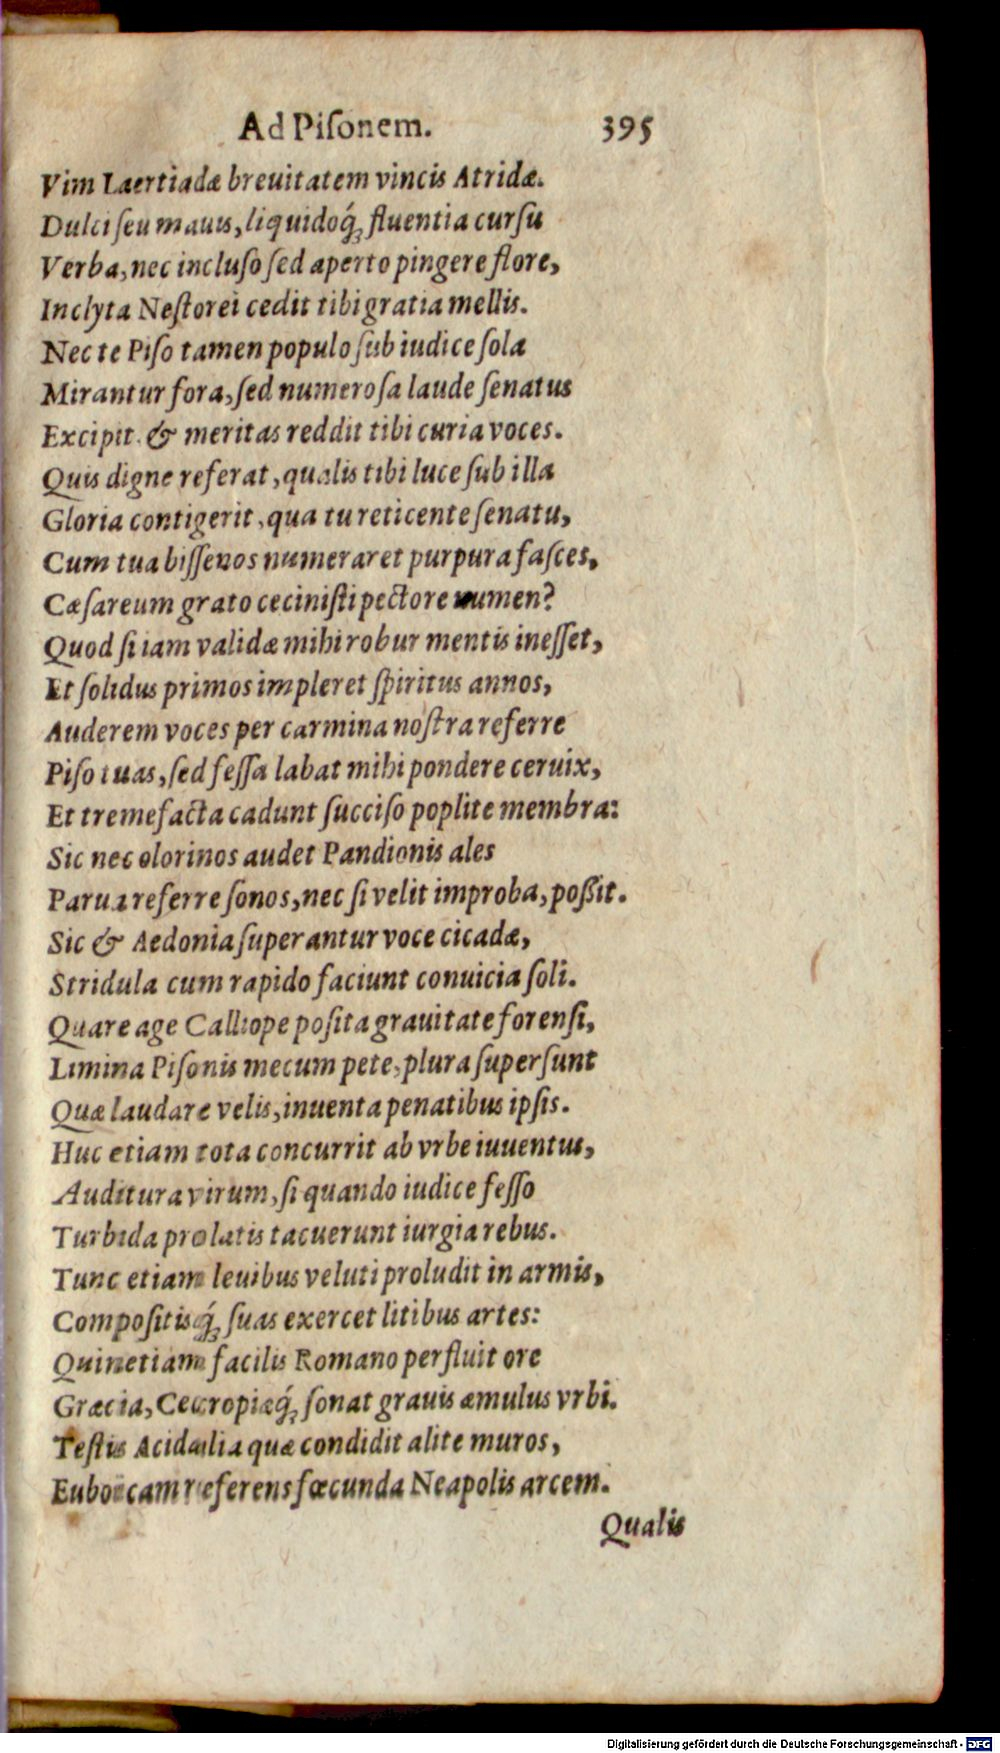 Ad Piſonem. 395
Vim Laertiadæ breuitatem vincis Atridæ.
Dulci ſeu mauis, liquidoq́; fluentia curſu
Verba, nec incluſo ſed aperto pingere flore,
Inclyta Neſtorei cedit tibi gratia mellis.
Nec te Piſo tamen populo ſub iudice ſola
Mirantur fora, ſed numeroſa laude ſenatus
Excipit. & meritas reddit tibi curia voces.
Quis digne referat, qualis tibi luce ſub illa
Gloria contigerit, qua tu reticente ſenatu,
Cum tua biſſenos numeraret purpura faſces,
Cæſareum grato ceciniſti pectore numen?
Quod ſi iam validæ mihi robur mentis ineſſet,
Et ſolidus primos impleret ſpiritus annos,
Auderem voces per carmina noſtra referre
Piſo tuas, ſed feſſa labat mihi pondere ceruix,
Et tremefacta cadunt ſucciſo poplite membra:
Sic nec olorinos audet Pandionis ales
Parua referre ſonos, nec ſi velit improba, poßit.
Sic & Aedonia ſuperantur voce cicadæ,
Stridula cum rapido faciunt conuicia ſoli.
Quare age Calliope poſita grauitate forenſi,
Limina Piſonis mecum pete, plura ſuperſunt
Quæ laudare velis, inuenta penatibus ipſis.
Huc etiam tota concurrit ab vrbe iuuentus,
Auditura virum, ſi quando iudice feſſo
Turbida prolatis tacuerunt iurgia rebus.
Tunc etiam leuibus veluti proludit in armis,
Compoſitisq́; ſuas exercet litibus artes:
Quinetiam facilis Romano perfluit ore
Græcia, Cecropiæq́; ſonat grauis æmulus vrbi.
Teſtis Acidalia quæ condidit alite muros,
Euboicam referens fœcunda Neapolis arcem.
Qualis
Digitalisierung gefördert durch die Deutsche Forschungsgemeinschaft - DFG